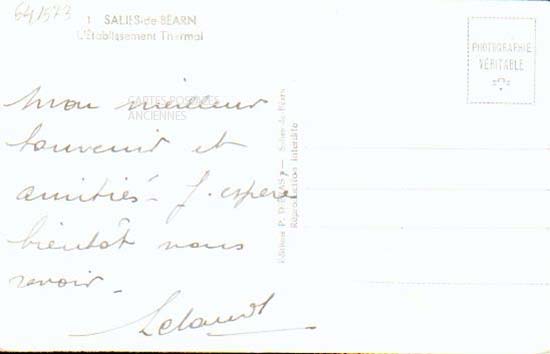 64/573
1 SALIES-de-BÉARN
L'Établissement Thermal
PHOTOGRAPHIE
VÉRITABLE
CARTES POSTALES
ANCIENNES
Mon meilleur
souvenir et
amitiés - J'espère
bientôt vous
revoir -
Édition P. — Salies-de-Béarn
Reproduction interdite